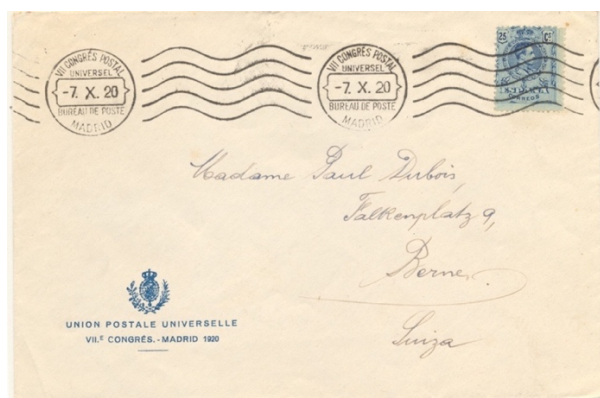 VII CONGRÉS POSTAL
UNIVERSEL
-7. X. 20
BUREAU DE POSTE
MADRID
VII CONGRÉS POSTAL
UNIVERSEL
-7. X. 20
BUREAU DE POSTE
MADRID
25 Cs
Madame Paul Dubois,
Falkenplatz 9,
Berne.
Suiza
UNION POSTALE UNIVERSELLE
VII.E CONGRÉS.-MADRID 1920